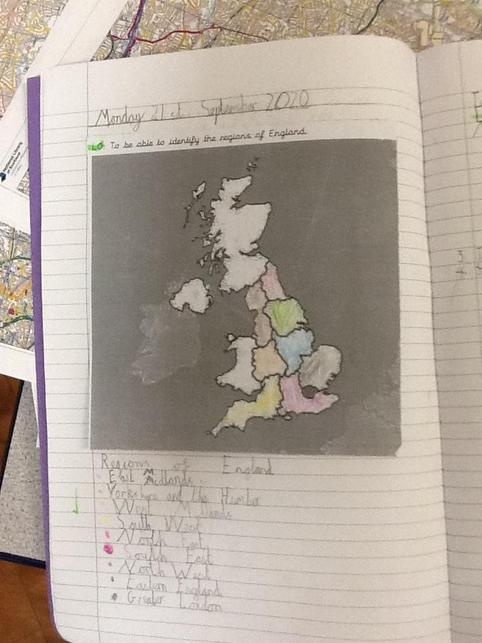 Monday 21st. September 2020
LO To be able to identify the regions of England
Regions of England
East Midlands
Yorkshire and the Humber
West Midlands
South West
North East
South East
North West
Eastern England
Greater London